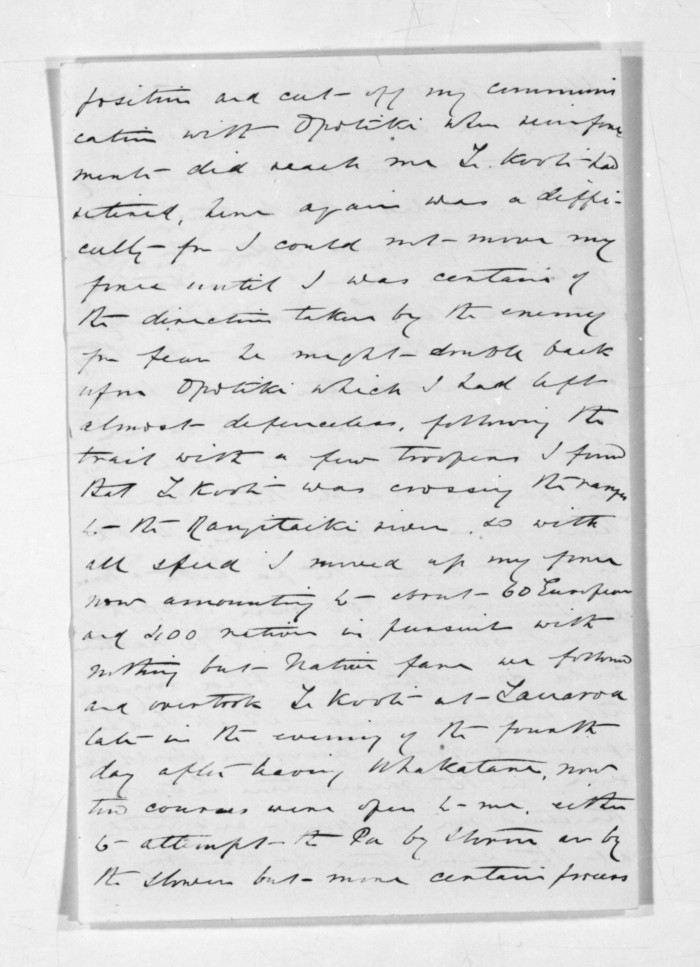 position and cut off my communi
cation with Opotiki when reinforce
ments did reach me Te Kooti had
retired, here again was a diffi-
culty for I could not move my
force until I was certain of
the direction taken by the enemy
for fear he might double back
upon Opotiki which I had left
almost defenceless, following the
trail with a few troopers I found
that Te Kooti was crossing the ranges
to the Rangitaiki river, so with
all speed I moved up my force
now amounting to about 60 European
and 400 natives in pursuit with
nothing but Native fare we followed
and overtook Te Kooti at Tauaroa
late in the evening of the fourth
day after leaving Whakatane, now
two courses were open to me, either
to attempt the Pa by storm or by
the slower but more certain process